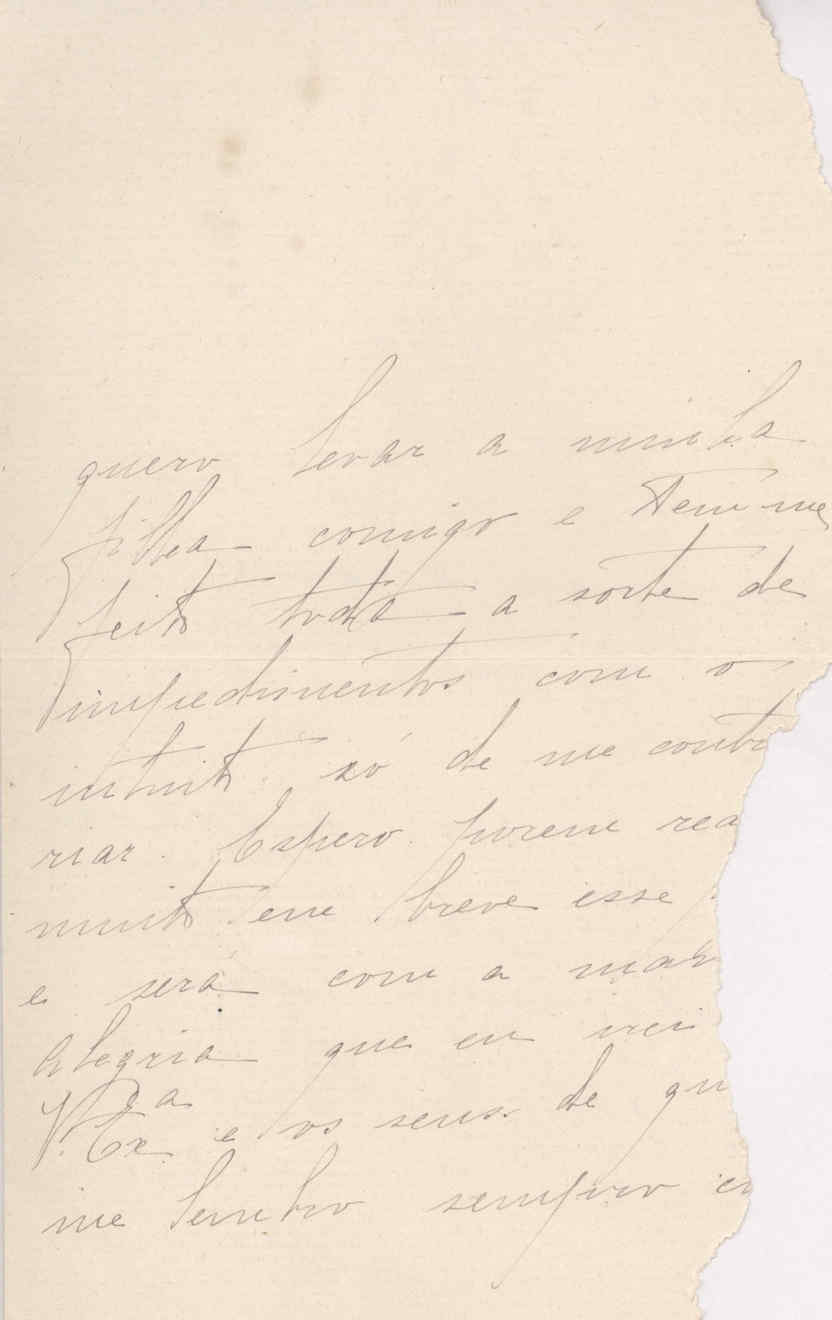 quero levar a minha
filha comigo e tem-me
feito toda a sorte de
impedimentos com o
intuito só de me contra
riar. Espero porem rea
muito em breve esse
e será com a maior
alegria que eu irei
V. Exª e os seus de qu
me lembro sempre